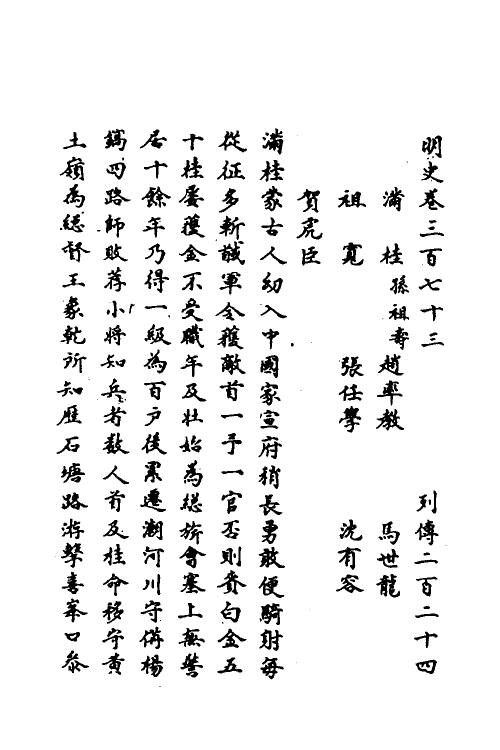 明史卷三百七十三 列傳二百二十四
滿桂 孫祖壽 趙率教 馬世龍
祖寬 張任學 沈有容
賀虎臣
滿桂蒙古人幼入中國家宣府稍長勇敢便騎射每
從征多斬馘軍令獲敵首一予一官否則賚白金五
十桂屢獲金不受職年及壯始為總旂會塞上無警
居十餘年乃得一級為百戶後累遷潮河川守備楊
鎬四路師敗荐小將知兵者數人首及桂命移守黃
土嶺為總督王象乾所知歴石塘路游擊喜峯口叅